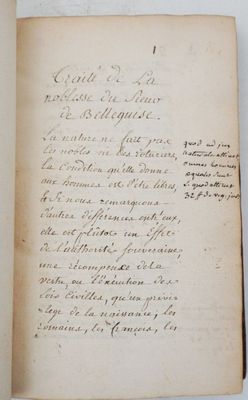 1
Traité de La
noblesse du Sieur
de Belleguise.
La nature ne fait pas
les nobles ni les roturiers,
la Condition qu'elle donne
aux hommes est d'être libres,
& si nous remarquons
d'autres différences entr'eux,
elle est plûtot un Effet
de l'authorité souveraine,
une récompense de la
vertu, ou l'éxécution des
lois Civilles, qu'un privi
lege de la naissance; les
romains, les françois, les
quod ad jus
naturale attinet
omnes homines
æquales sunt
L. quod attinet
32 ff de reg. jur.